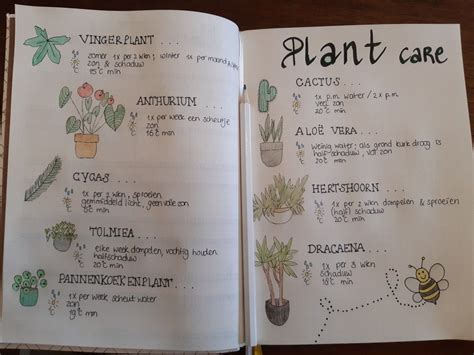 VINGERPLANT ...
1x per 2 wkn; winter 1x per maand
zon & schaduw
15°C min
ANTHURIUM ....
1x per week een scheutje
zon
16°C min
CYCAS ....
1x per 2 wkn, sproeien
gemiddeld licht, geen volle zon
°C
TOLMIEA ...
elke week dompelen, vochtig houden
halfschaduw
20°C min
PANNENKOEKENPLANT ...
1x per week scheut water
zon
°C min
Plant care
CACTUS ....
1x p.m. water / 2x p.m.
veel zon
20°C min
ALOË VERA ....
Weinig water; als grond kurk droog is
half-schaduw, vol zon
°C
HERTSHOORN ....
1x per 2 wkn dompelen & sproeien
(half) schaduw
20°C min
DRACAENA ....
1x per 3 wkn
schaduw
18°C min